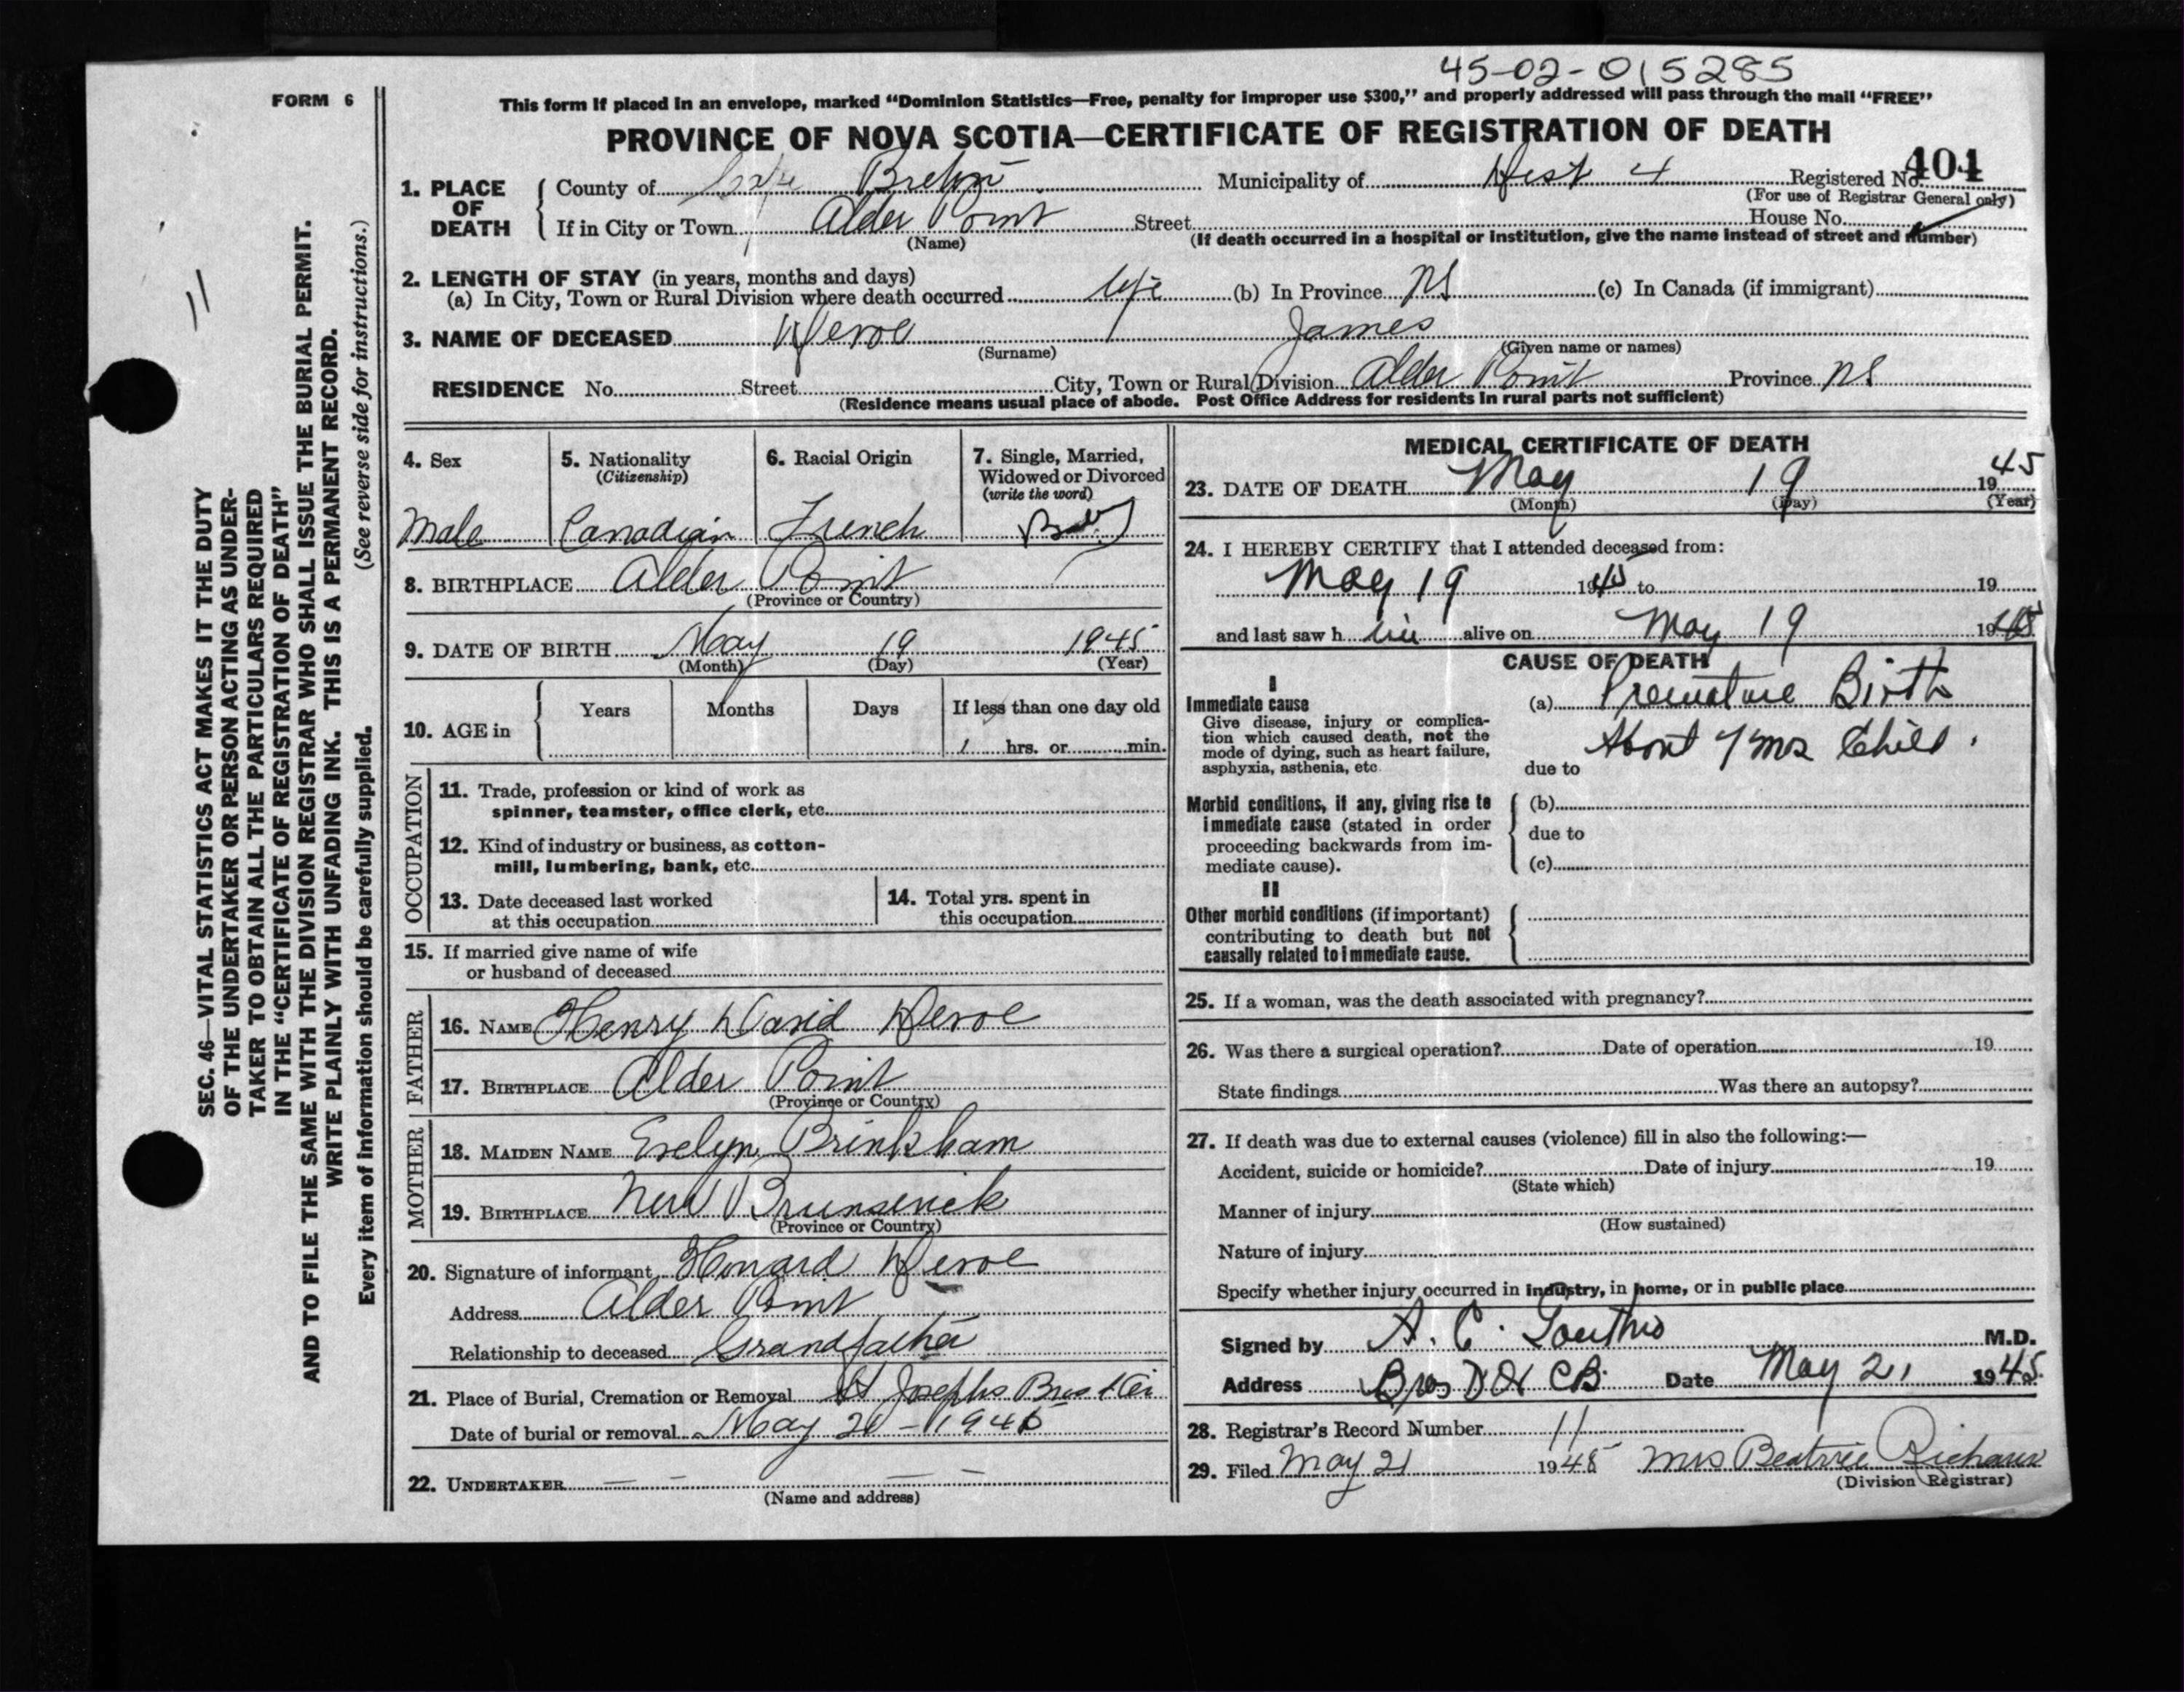 45-02-015285
FORM 6
This form if placed in an envelope, marked “Dominion Statistics—Free, penalty for improper use $300,” and properly addressed will pass through the mail “FREE”
PROVINCE OF NOVA SCOTIA—CERTIFICATE OF REGISTRATION OF DEATH
1. PLACE OF DEATH { County of Cape Breton Municipality of Dist 4 Registered No. 401
(For use of Registrar General only)
If in City or Town Alder Point Street House No.
(Name) (If death occurred in a hospital or institution, give the name instead of street and number)
2. LENGTH OF STAY (in years, months and days)
(a) In City, Town or Rural Division where death occurred life (b) In Province NS (c) In Canada (if immigrant)
3. NAME OF DECEASED Deroe James
(Surname) (Given name or names)
RESIDENCE No. Street City, Town or Rural Division Alder Point Province NS
(Residence means usual place of abode. Post Office Address for residents in rural parts not sufficient)
4. Sex 5. Nationality (Citizenship) 6. Racial Origin 7. Single, Married, Widowed or Divorced (write the word)
Male Canadian French Baby
8. BIRTHPLACE Alder Point
(Province or Country)
9. DATE OF BIRTH May 19 1945
(Month) (Day) (Year)
10. AGE in { Years Months Days If less than one day old
1 hrs. or min.
OCCUPATION
11. Trade, profession or kind of work as
spinner, teamster, office clerk, etc.
12. Kind of industry or business, as cotton-
mill, lumbering, bank, etc.
13. Date deceased last worked
at this occupation
14. Total yrs. spent in
this occupation
15. If married give name of wife
or husband of deceased
FATHER
16. NAME Henry David Deroe
17. BIRTHPLACE Alder Point
(Province or Country)
MOTHER
18. MAIDEN NAME Evelyn Brinkham
19. BIRTHPLACE New Brunswick
(Province or Country)
20. Signature of informant Howard Deroe
Address Alder Point
Relationship to deceased Grandfather
21. Place of Burial, Cremation or Removal St Josephs Bras
Date of burial or removal May 20 - 1945
22. UNDERTAKER — — — —
(Name and address)
MEDICAL CERTIFICATE OF DEATH
23. DATE OF DEATH May 19 1945
(Month) (Day) (Year)
24. I HEREBY CERTIFY that I attended deceased from:
May 19 1945 to 19
and last saw him alive on May 19 1945
CAUSE OF DEATH
I
Immediate cause
Give disease, injury or complica-
tion which caused death, not the
mode of dying, such as heart failure,
asphyxia, asthenia, etc.
(a) Premature Birth
About 7 mos Child.
due to
Morbid conditions, if any, giving rise to
immediate cause (stated in order
proceeding backwards from im-
mediate cause).
(b)
due to
(c)
II
Other morbid conditions (if important)
contributing to death but not
causally related to immediate cause.
25. If a woman, was the death associated with pregnancy?
26. Was there a surgical operation? Date of operation 19
State findings Was there an autopsy?
27. If death was due to external causes (violence) fill in also the following:—
Accident, suicide or homicide? Date of injury 19
(State which)
Manner of injury
(How sustained)
Nature of injury
Specify whether injury occurred in industry, in home, or in public place
Signed by A. C. M.D.
Address Bras CB. Date May 21 1945
28. Registrar's Record Number 11
29. Filed May 21 1945 Mrs Beatrice
(Division Registrar)
11
SEC. 46—VITAL STATISTICS ACT MAKES IT THE DUTY
OF THE UNDERTAKER OR PERSON ACTING AS UNDER-
TAKER TO OBTAIN ALL THE PARTICULARS REQUIRED
IN THE “CERTIFICATE OF REGISTRATION OF DEATH”
AND TO FILE THE SAME WITH THE DIVISION REGISTRAR WHO SHALL ISSUE THE BURIAL PERMIT.
WRITE PLAINLY WITH UNFADING INK. THIS IS A PERMANENT RECORD.
Every item of information should be carefully supplied. (See reverse side for instructions.)